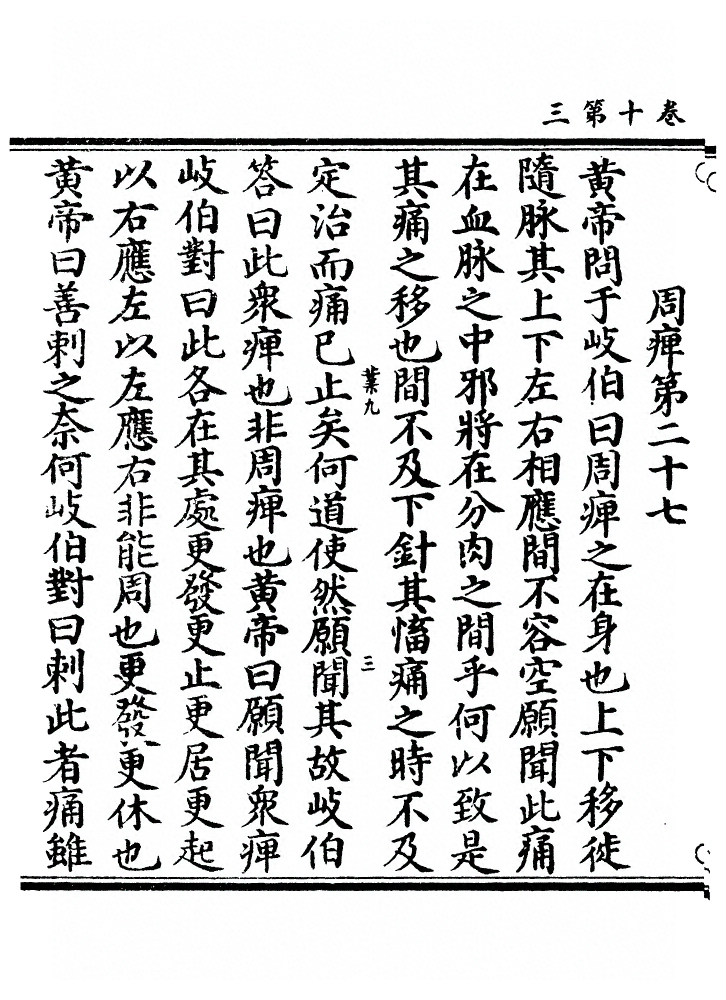 卷十第三
周痺第二十七
黄帝問于岐伯曰周痺之在身也上下移徙
隨脉其上下左右相應間不容空願聞此痛
在血脉之中邪將在分肉之間乎何以致是
其痛之移也間不及下針其慉痛之時不及
葉九
三
定治而痛已止矣何道使然願聞其故岐伯
答曰此衆痺也非周痺也黄帝曰願聞衆痺
岐伯對曰此各在其處更發更止更居更起
以右應左以左應右非能周也更發更休也
黄帝曰善刺之奈何岐伯對曰刺此者痛雖